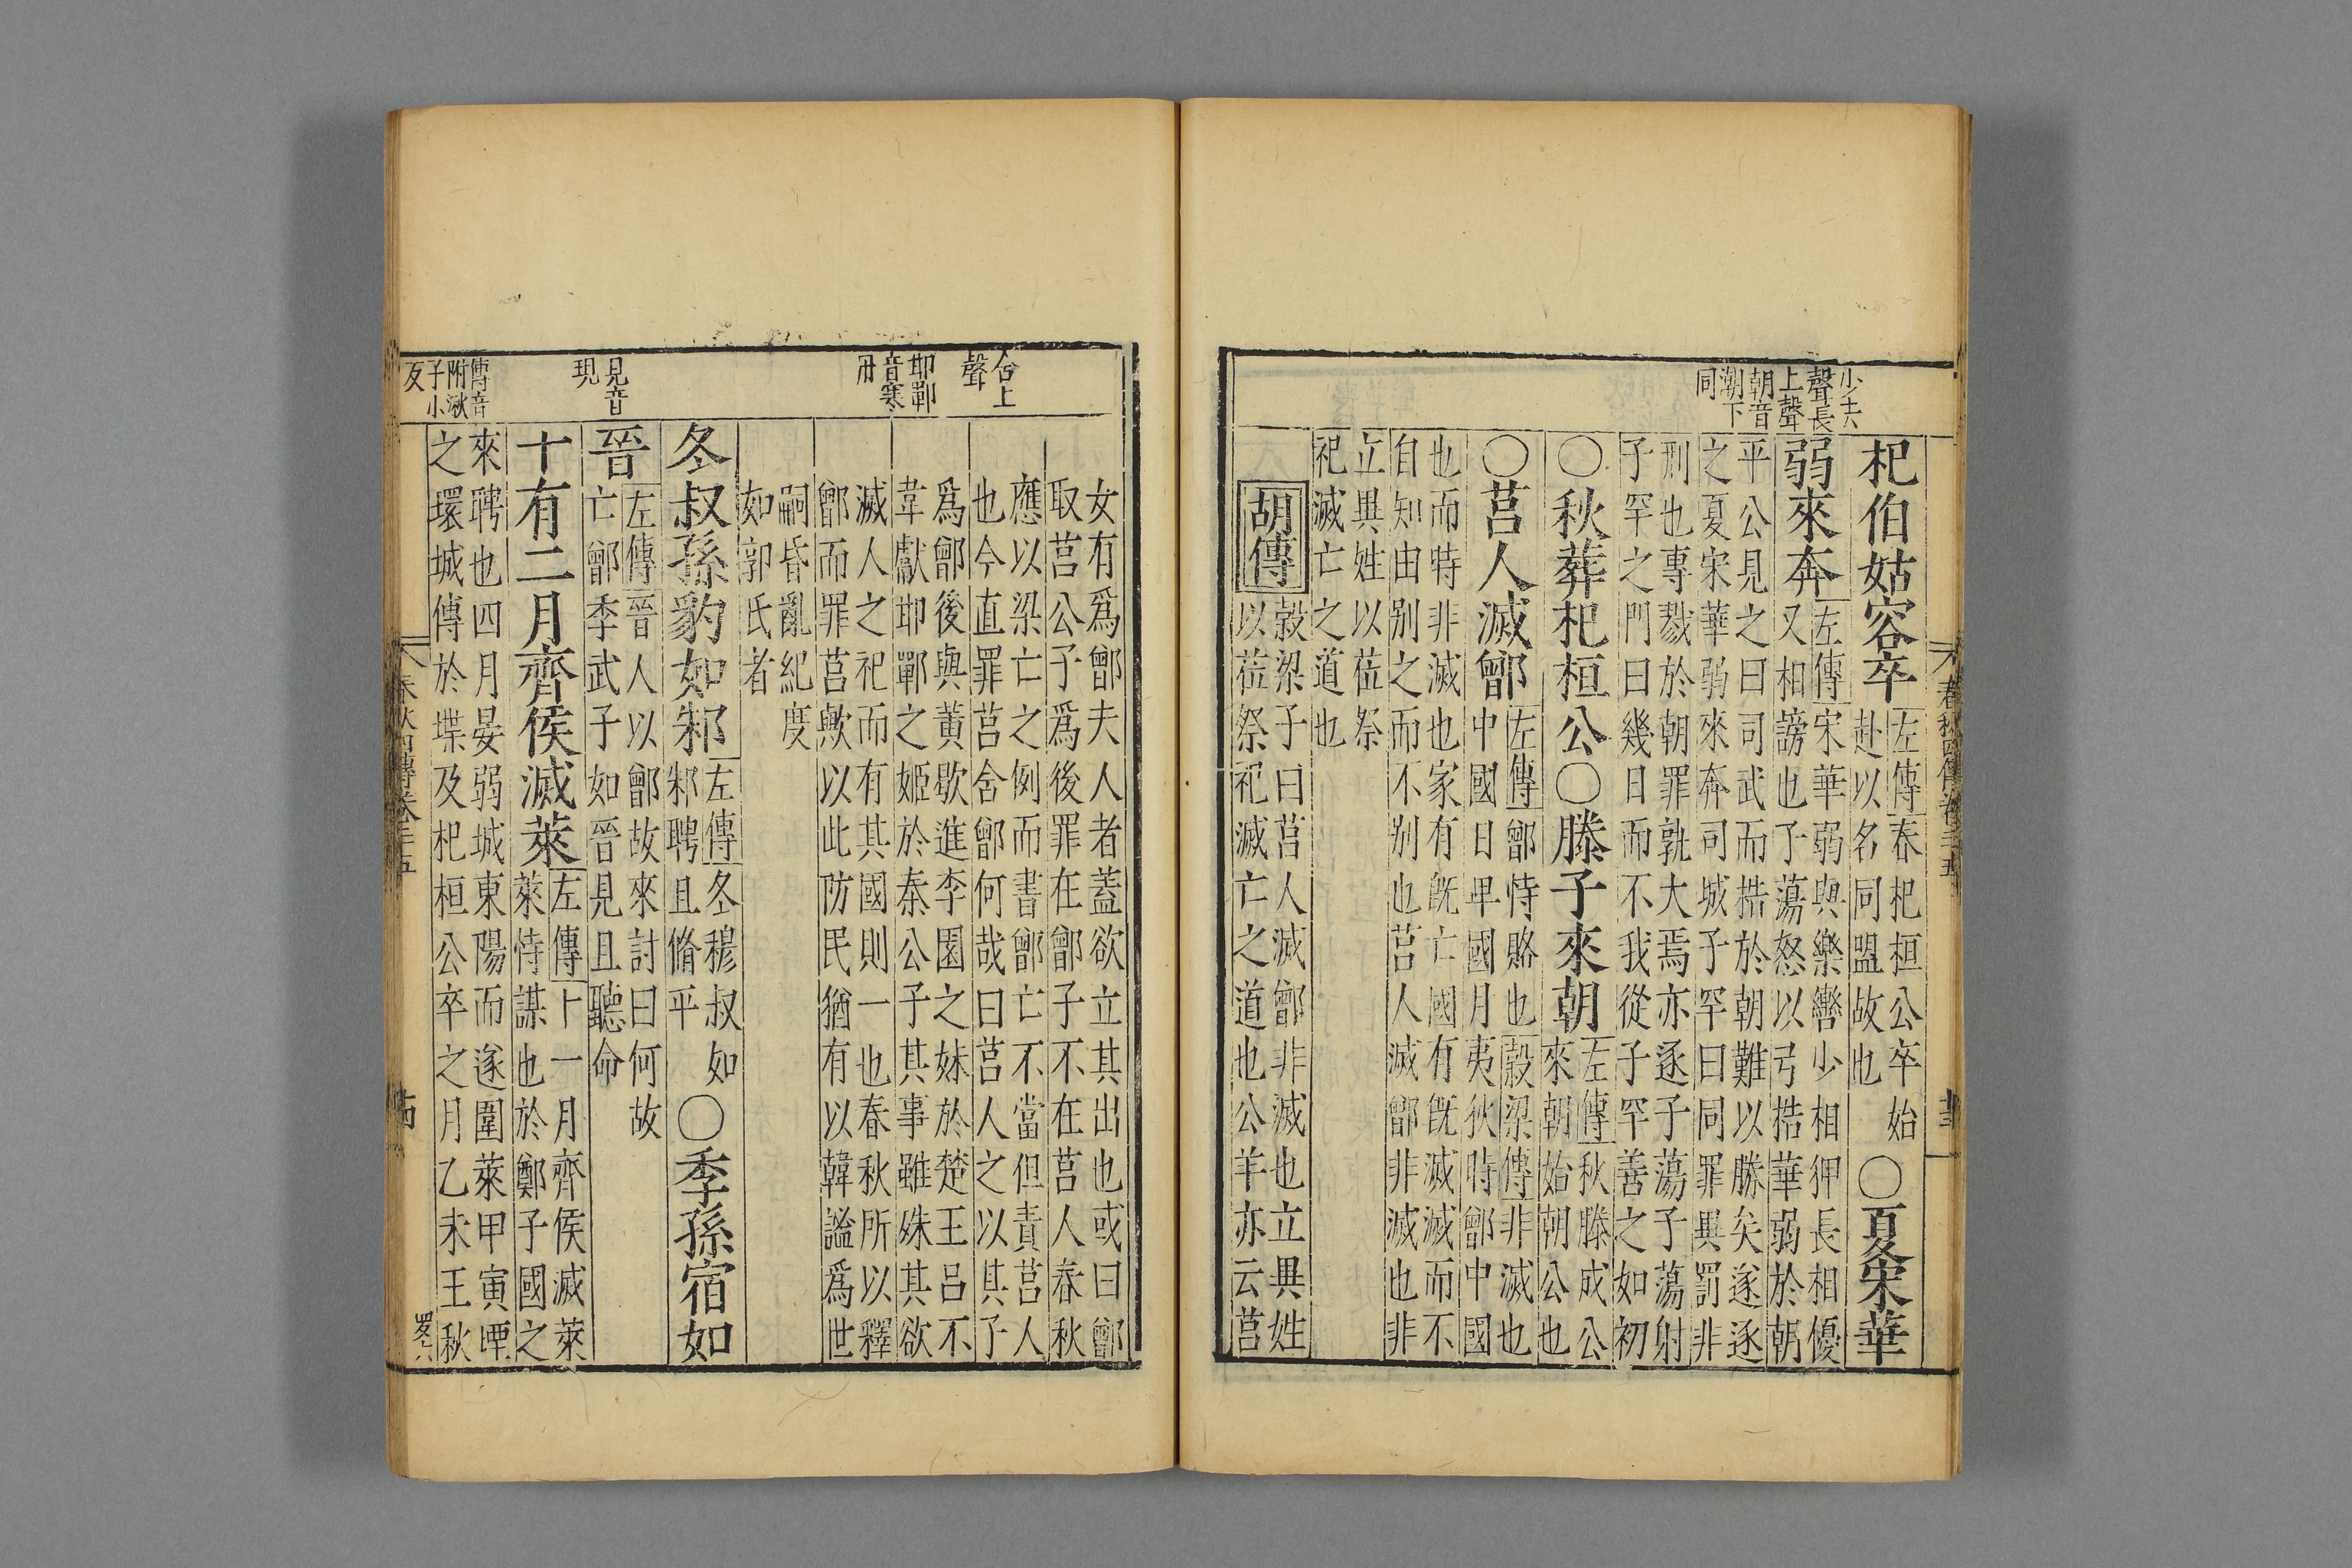 春秋四傳卷二十五
十三
少去
聲長
上聲
朝音
潮下
同
杞伯姑容卒
左傳春杞桓公卒始
赴以名同盟故也
○夏宋華
弱來奔
左傳宋華弱與樂轡少相狎長相優
又相謗也子蕩怒以弓梏華弱於朝
平公見之曰司武而梏於朝難以勝矣遂逐
之夏宋華弱來奔司城子罕曰同罪異罰非
刑也專戮於朝罪孰大焉亦逐子蕩子蕩射
子罕之門曰幾日而不我從子罕善之如初
○秋葬杞桓公○滕子來朝
左傳秋滕成公
來朝始朝公也
○莒人滅鄫
左傳鄫恃賂也穀梁傳非滅也
中國日卑國月夷狄時鄫中國
也而時非滅也家有旣亡國有旣滅滅而不
自知由别之而不别也莒人滅鄫非滅也非
立異姓以莅祭
祀滅亡之道也
胡傳
穀梁子曰莒人滅鄫非滅也立異姓
以莅祭祀滅亡之道也公羊亦云莒
舍上
聲
邯鄲
音寒
丹
見音
現
傳音
附湫
子小
反
女有爲鄫夫人者蓋欲立其出也或曰鄫
取莒公子爲後罪在鄫子不在莒人春秋
應以梁亡之例而書鄫亡不當但責莒人
也今直罪莒舍鄫何哉曰莒人之以其子
爲鄫後與黃歇進李園之妹於楚王呂不
韋獻邯鄲之姬於秦公子其事雖殊其欲
滅人之祀而有其國則一也春秋所以釋
鄫而罪莒歟以此防民猶有以韓謐爲世
嗣昏亂紀度
如郭氏者
冬叔孫豹如邾
左傳冬穆叔如
邾聘且脩平
○季孫宿如
晉
左傳晉人以鄫故來討曰何故
亡鄫季武子如晉見且聽命
十有二月齊侯滅萊
左傳十一月齊侯滅萊
萊恃謀也於鄭子國之
來聘也四月晏弱城東陽而遂圍萊甲寅堙
之環城傅於堞及杞桓公卒之月乙未王秋
春秋四傳卷二十五
十四